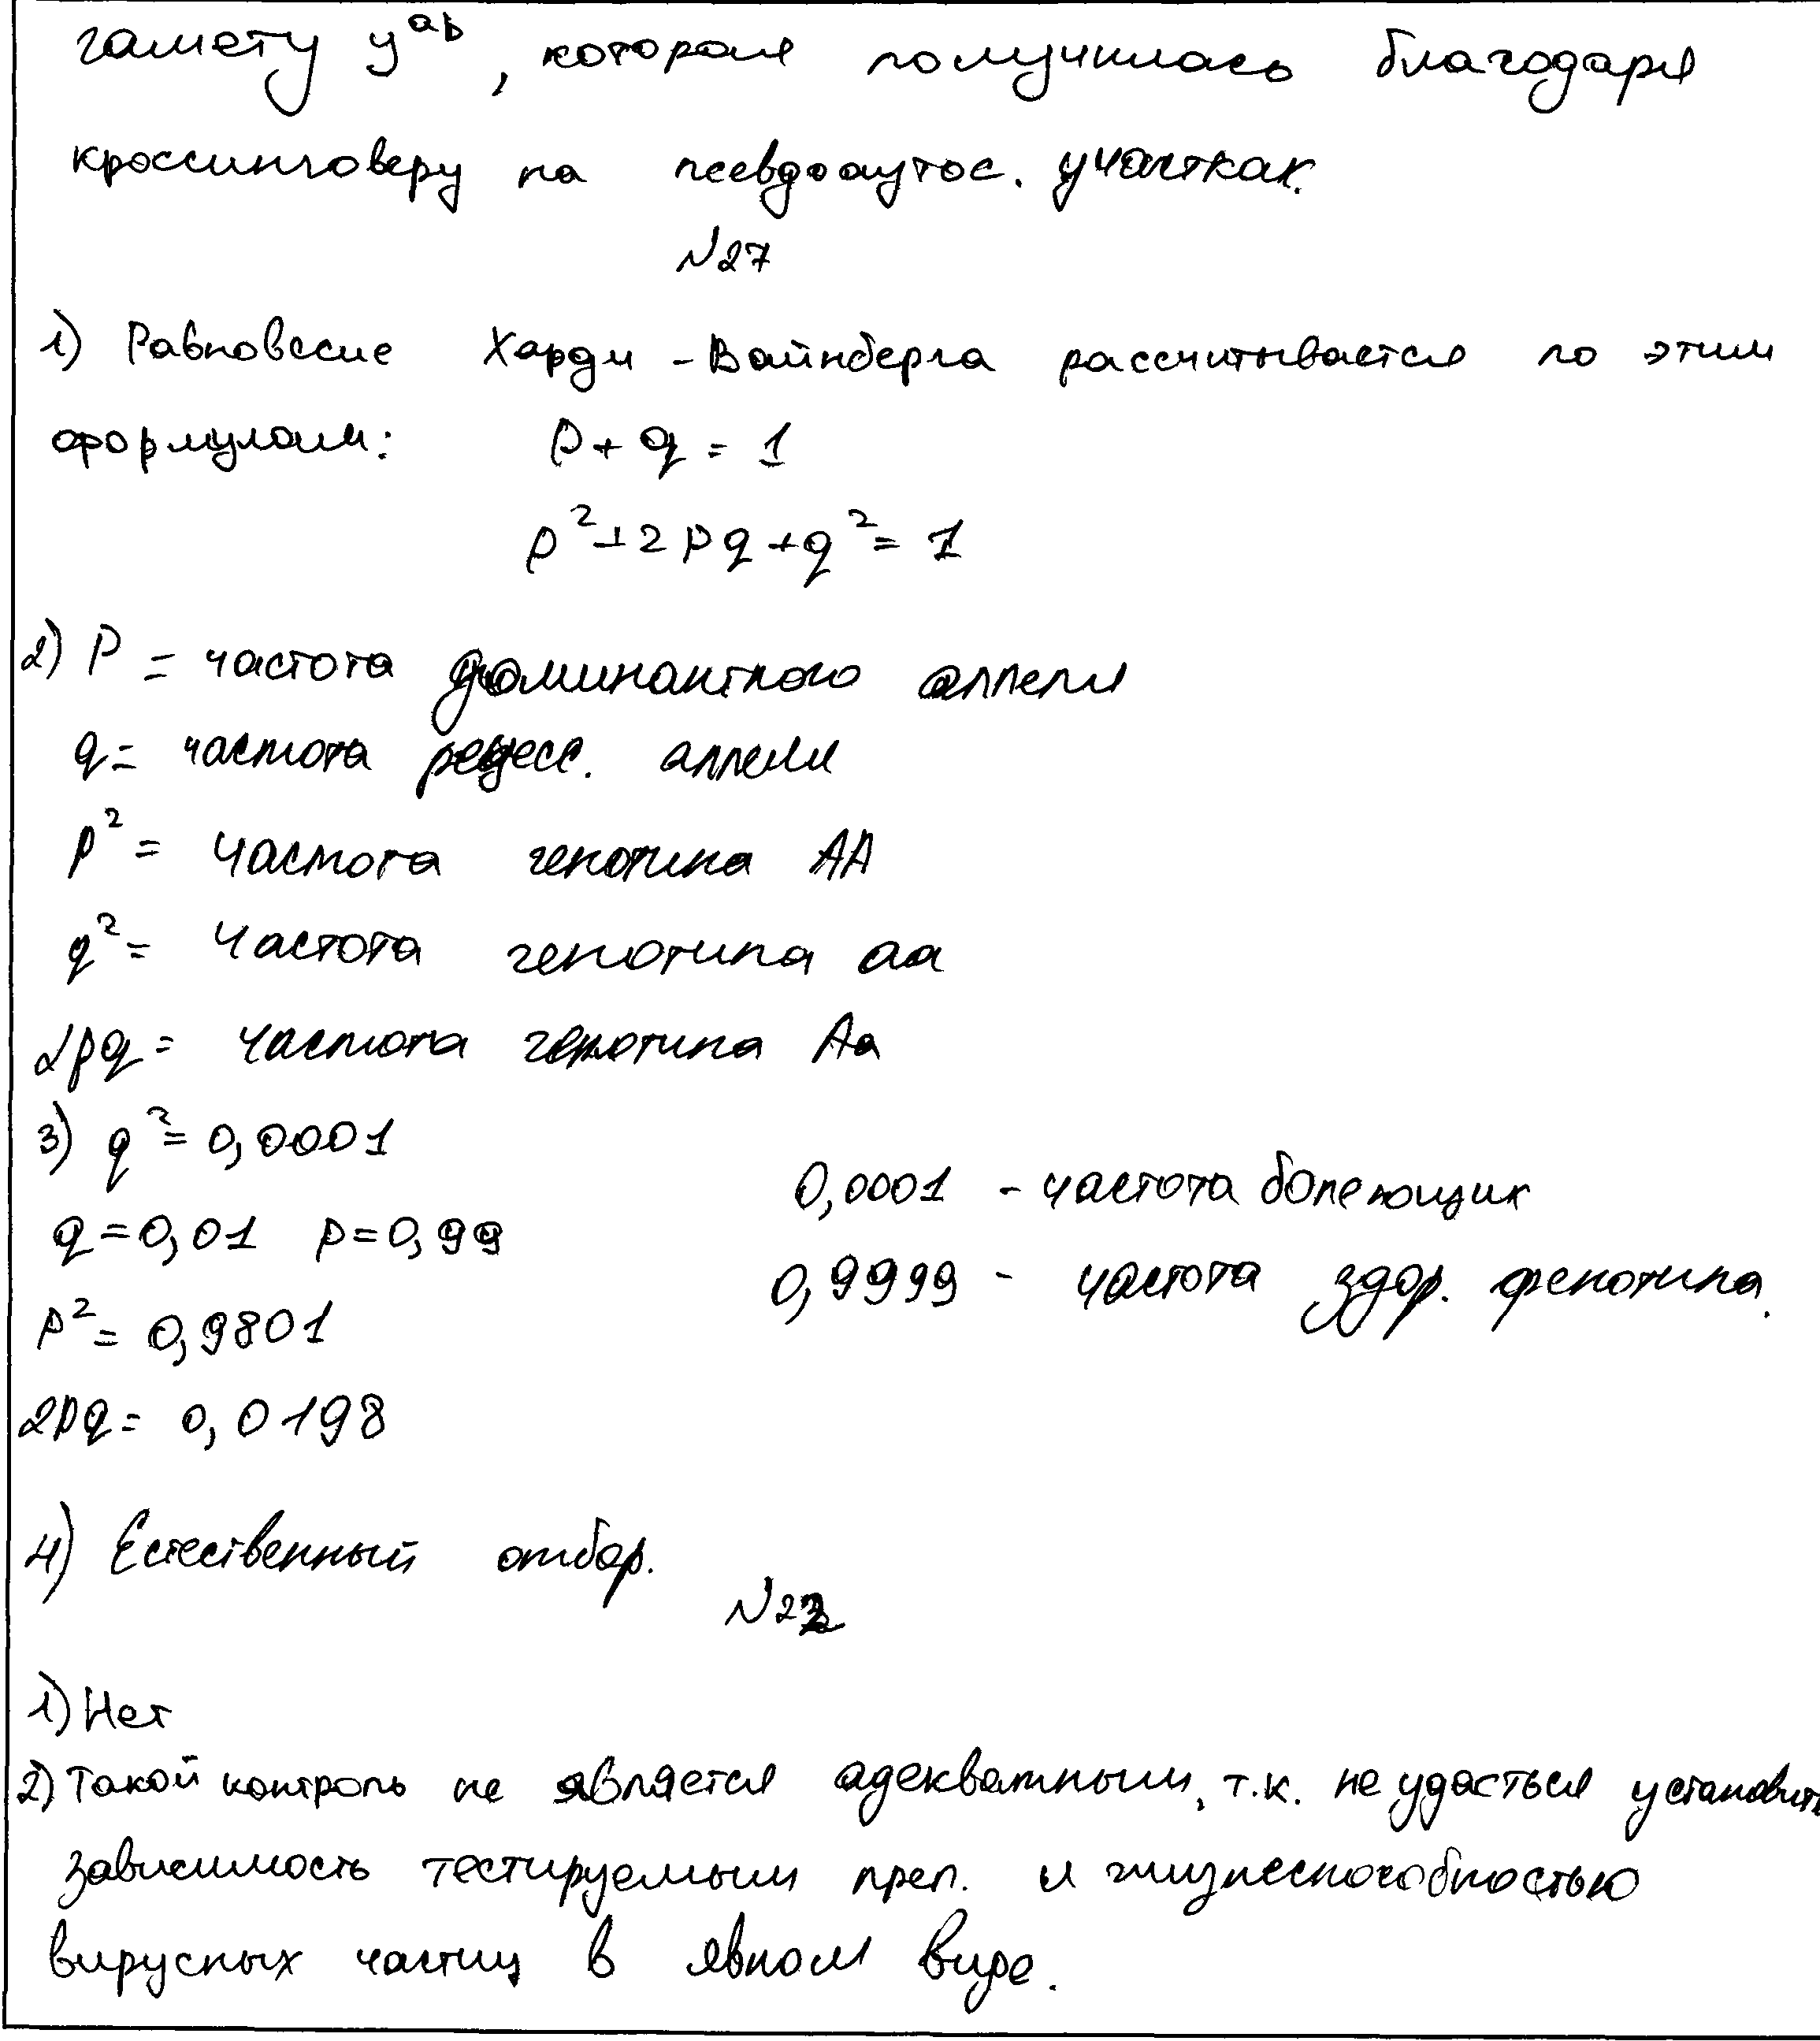 гамету y^ab, которая получилась благодаря
кроссинговеру на псевдоаутос. участках.
№27
1) Равновесие Харди - Вайнберга рассчитывается по этим
формулам: p + q = 1
p² + 2pq + q² = 1
2) P = частота доминантного аллеля
q = частота рецесс. аллеля
p² = частота генотипа AA
q² = частота генотипа aa
2pq = частота генотипа Aa
3) q² = 0,0001
0,0001 - частота болеющих
q = 0,01 p = 0,99
0,9999 - частота здор. фенотипа.
p² = 0,9801
2pq = 0,0198
4) Естественный отбор.
№22
1) Нет
2) Такой контроль не является адекватным, т.к. не удасться установить
зависимость тестируемым преп. и жизнеспособностью
вирусных частиц в явном виде.